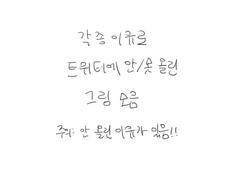 각종 이유로
트위터에 안/못 올린
그림 모음
주의: 안 올린 이유가 있음!!